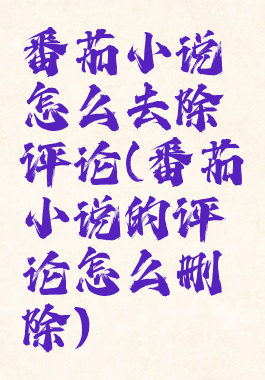 番茄小说
怎么去除
评论(番茄
小说的评
论怎么删
除)